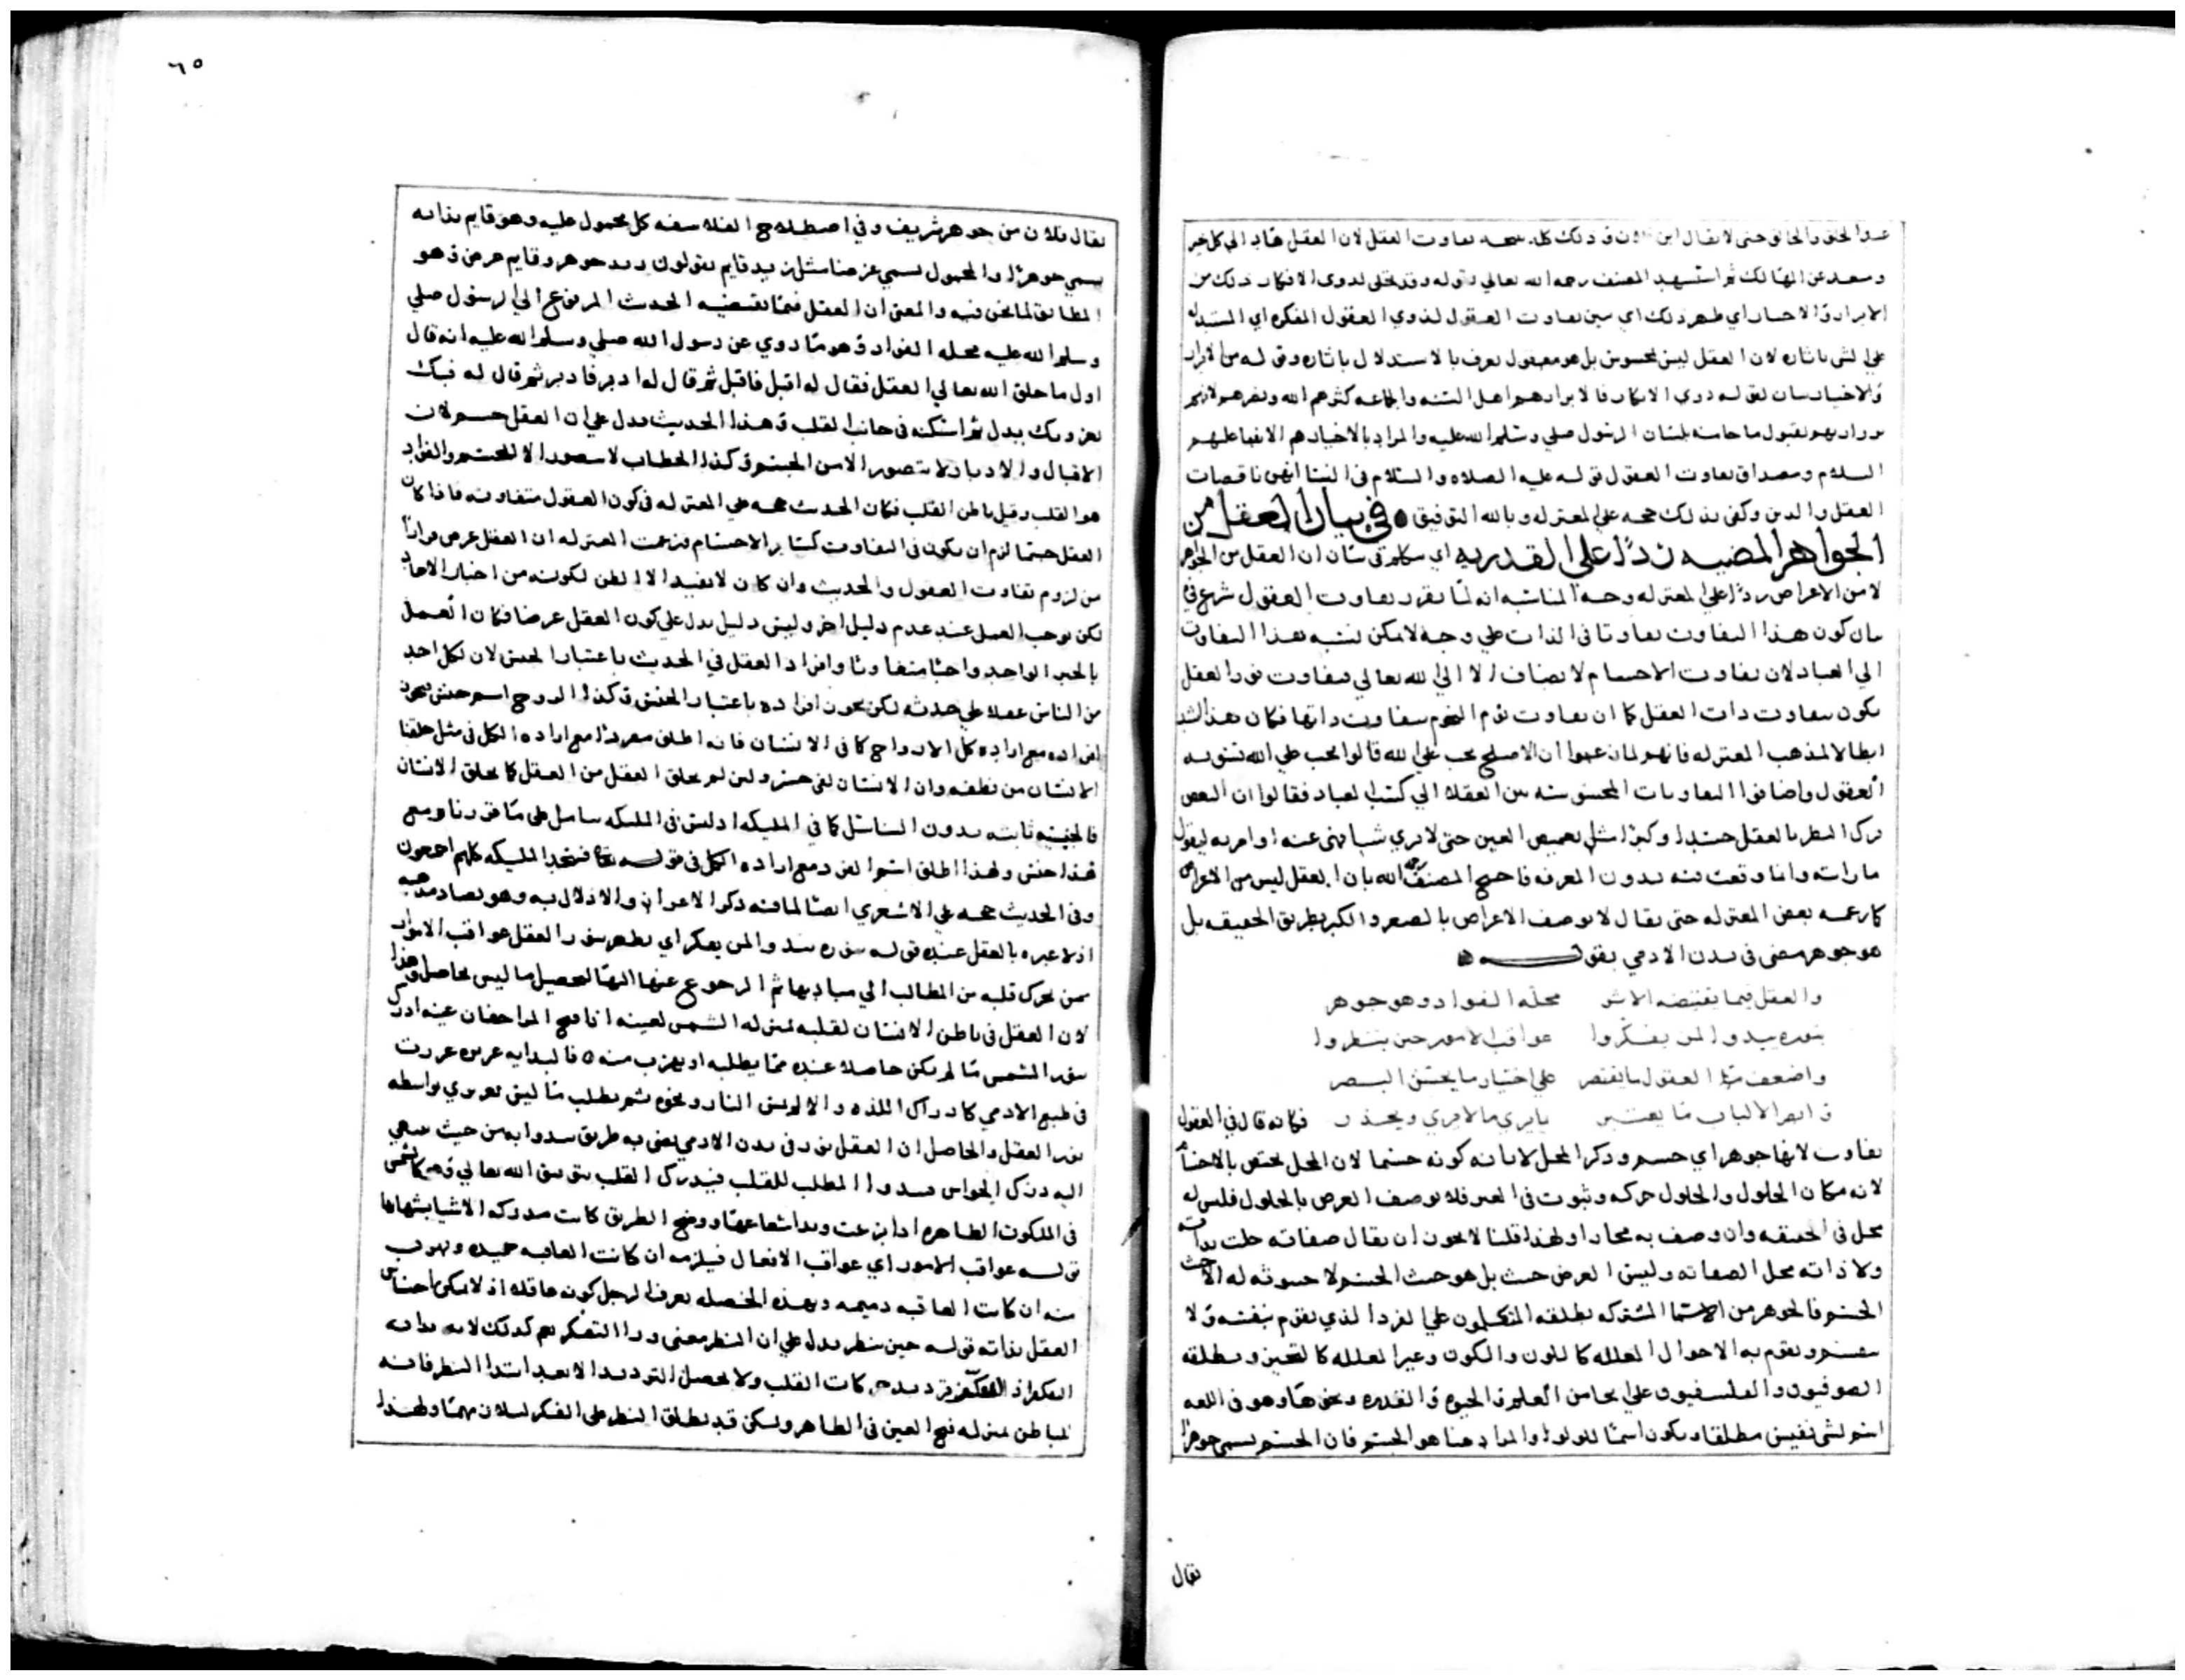 وسعد عن المهالك ثم استشهد المصنف رحمه الله تعالي بقوله وقد تجلى لذوي الافكار ذلك من
الابرار والاخيار اي ظهر ذلك اي تبين تفاوت العقول لذوي العقول المفكره اي المستدله
علي الشي باثاره لان العقل ليس بمحسوس بل هو معقول يعرف بالاستدلال باثاره وقوله من الابرار
والاخيار بيان لقوله ذوي الافكار فالابرار هم اهل السنه والجماعه كثرهم الله ونصرهم لانهم
بقبول ما جا منه بلسان الرسول صلي وسلم الله عليه والمراد بالاخيار هم الانبيا عليهم
السلام ومصداق تفاوت العقول قوله عليه الصلاه والسلام في النسا انهن ناقصات
العقل والدين وكفى بذلك حجه علي المعتزله وبالله التوفيق ٥ في بيان العقل من
الجواهر المضيه ردا علي القدريه اي سكلم في بيان ان العقل من الجواهر
لا من الاعراض ردا علي المعتزله وجه المناسبه انه لما تقرر تفاوت العقول شرع في
بيان كون هذا التفاوت تفاوتا في الذات علي وجه لا يمكن نسبه هذا التفاوت
الي العباد لان تفاوت الاجسام لا يضاف الا الي الله تعالي فتفاوت نور العقل
يكون بتفاوت ذات العقل كما ان تفاوت نور النجوم بتفاوت ذاتها فكان هذا
ابطالا لمذهب المعتزله فانهم لما زعموا ان الاصلح يجب علي الله قالوا يجب علي الله تسويه
العقول واضافوا التفاوتات المحسوسه بين العقلا الي كسب العباد فقالوا ان البعض
ترك النظر بالعقل حسدا وكبرا مثل تغميض العين حتى لا يري شيا نهى عنه او امر به ليقول
ما رايته وانما وقعت فيه بدون المعرفه فاحتج المصنف رحمه الله بان العقل ليس من الاعراض
كما زعمه بعض المعتزله حتى يقال لا يوصف الاعراض بالصغر والكبر بطريق الحقيقه بل
هو جوهر مضي في بدن الادمي بقوله
والعقل فيما يقتضيه الاثر محله الفواد وهو جوهر
بنوره يبدو لمن يفكروا عواقب الامور حين ينظروا
واضعف العقول ما يقتصر علي اختيار ما يحسن البصر
الالباب ما يعتبر بما يري ما لا يري ويحذر فكانه قال في العقول
تفاوت لانها جوهر اي جسم وذكر المحل لابانه كونه جسما لان المحل يختص بالاجسام
لانه مكان الحلول والحلول حركه وثبوت في الغير فلا يوصف العرض بالحلول فليس له
محل في الحقيقه وان وصف به مجازا ولهذا قلنا لا يجوز ان يقال صفاته حلت بذاته
ولا ذاته محل لصفاته وليس العرض
الجسم فالجوهر من الاسما المشتركه يطلقه المتكلمون علي الفرد الذي يقوم بنفسه ولا
ينقسم ويقوم به الاحوال المعلله كاللون والكون وغير المعلله كالتحيز ويطلقه
الصوفيون والفلسفيون علي محاسن العلم والحيوه والقدره ونحوها وهو في اللغه
اسم لشي نفيس مطلقا ويكون اسما للولو والمراد هنا هو الجسم فان الجسم يسمى جوهرا
يقال
٦٥
يقال فلان من جوهر شريف وفي اصطلاح الفلاسفه كل محمول عليه وهو قايم بذاته
يسمي جوهرا والمحمول يسمي عرضا مثل زيد قايم يقولون زيد جوهر وقايم عرض وهو
المطابق لما نحن فيه والمعنى ان العقل فيما يقتضيه الحديث المرفوع الي الرسول صلي
وسلم الله عليه محله الفواد وهو ما روي عن رسول الله صلي وسلم الله عليه انه قال
اول ما خلق الله تعالي العقل فقال له اقبل فاقبل ثم قال له ادبر فادبر ثم قال له فبك
ثم اسكنه في جانب القلب وهذا الحديث يدل علي ان العقل جسم لان
الاقبال والادبار لا يتصور الا من الجسم وكذا الخطاب لا يتصور الا للجسم والفواد
هو القلب وقيل باطن القلب فكان الحديث حجه علي المعتزله في كون العقول متفاوته فاذا كان
العقل جسما لزم ان يكون في التفاوت كساير الاجسام فزعمت المعتزله ان العقل عرض فرارا
من لزوم تفاوت العقول والحديث وان كان لا يفيد الا الظن لكونه من اخبار الاحاد
لكن يوجب العمل عند عدم دليل اخر وليس دليل يدل علي كون العقل عرضا فكان العمل
بالخبر الواحد واجبا وافراد العقل في الحديث باعتبار الجنس لان لكل احد
من الناس عقلا علي حدته لكن يجوز افراده باعتبار الجنس وكذا الروح اسم جنس يجوز
افراده مع اراده كل الارواح كما في الانسان فانه اطلق مفردا مع اراده الكل في مثل خلقنا
الانسان من نطفه وان الانسان لفي خسر ولين لم يخلق العقل من العقل كما يخلق الانسان
فالجنسيه ثابته بدون التناسل كما في المليكه اذ ليس في المليكه تناسل علي ما قررنا ومع
هذا جنس ولهذا اطلق اسم الفرد مع اراده الكل في قوله تعالى فسجد المليكه كلهم اجمعون
وفي الحديث حجه علي الاشعري ايضا لما فيه ذكر الاعزاز والاذلال به وهو يضاد مذهبه
اذ لا عبره بالعقل عنده قوله بنوره يبدو لمن يفكر اي يظهر بنور العقل عواقب الامور
بمن يحرك قلبه من المطالب الي مباديها ثم الرجوع عنها اليها لتحصيل ما ليس بحاصل وهذا
لان العقل في باطن الانسان لقلبه بمنزله الشمس لعينه اذا فتح المراحفان عينه ادرك
بنور الشمس ما لم يكن حاصلا عنده مما يطلبه او يهرب منه ٥ فالبدايه
في طبع الادمي كادراك اللذه والالم بمس النار ونحوه ثم يطلب ما ليس بغريزي بواسطه
نور العقل والحاصل ان العقل نور في بدن الادمي يضي به طريق يبدوا به من حيث ينتهي
اليه درك الحواس فيبدوا المطلب للقلب فيدرك القلب بتوفيق الله تعالي وهو كالشمس
في الملكوت الظاهره اذا بزغت وبدا شعاعها ووضح الطريق كانت مدركه الاشيا بشهابها
قوله عواقب الامور اي عواقب الافعال فيلزمه ان كانت العاقبه حميده ويهرب
منه ان كانت العاقبه ذميمه وبهذه الخصله يعرف الرجل كونه عاقلا اذ لا يمكن احساس
العقل بذاته قوله حين ينظر يدل علي ان النظر معنى ورا التفكر نعم كذلك لانه بدايه
الفكر اذ التفكر ترديد حركات القلب ولا يحصل الترديد الا بعد ابتدا النظر فانه
للباطن بمنزله فتح العين في الظاهر ولكن قد يطلق النظر علي الفكر ولهذا